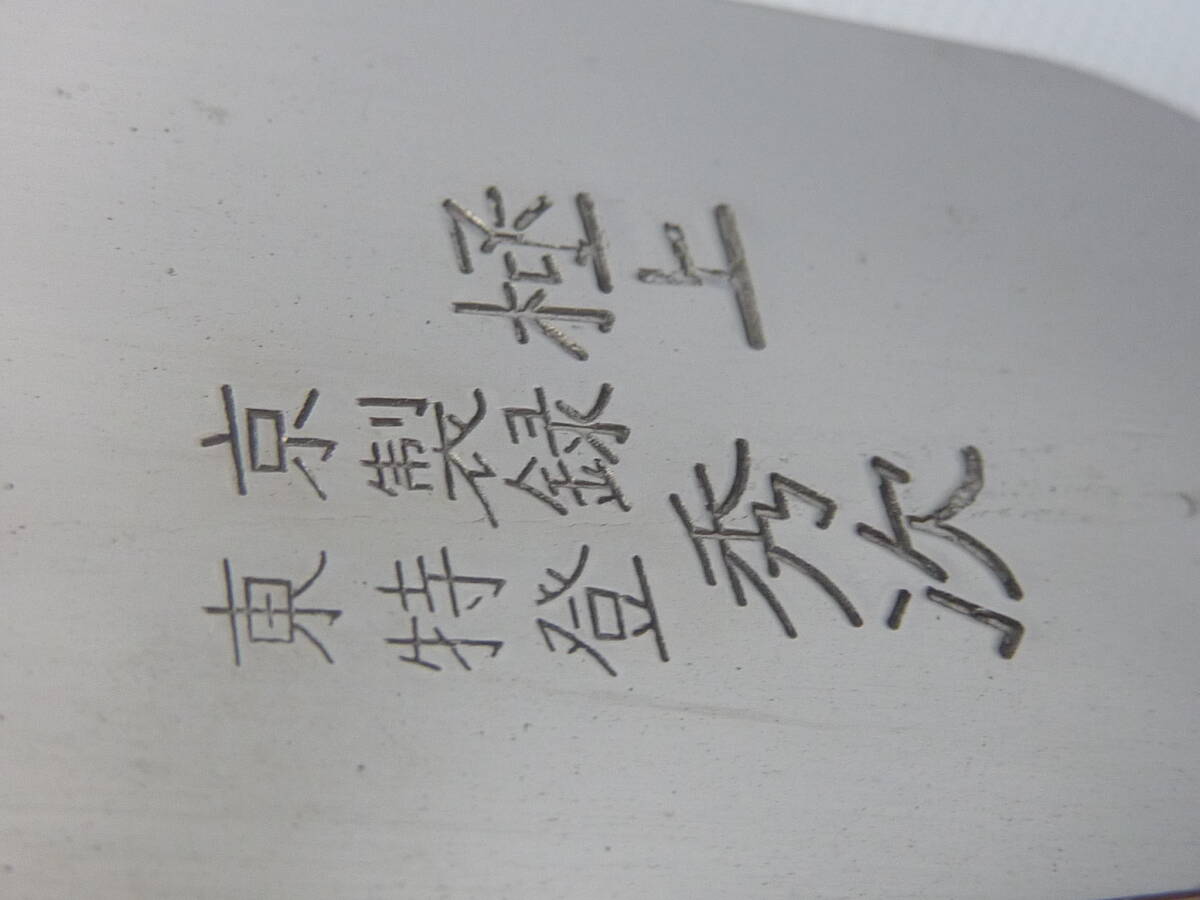 極上
東京
特製
登録
秀次